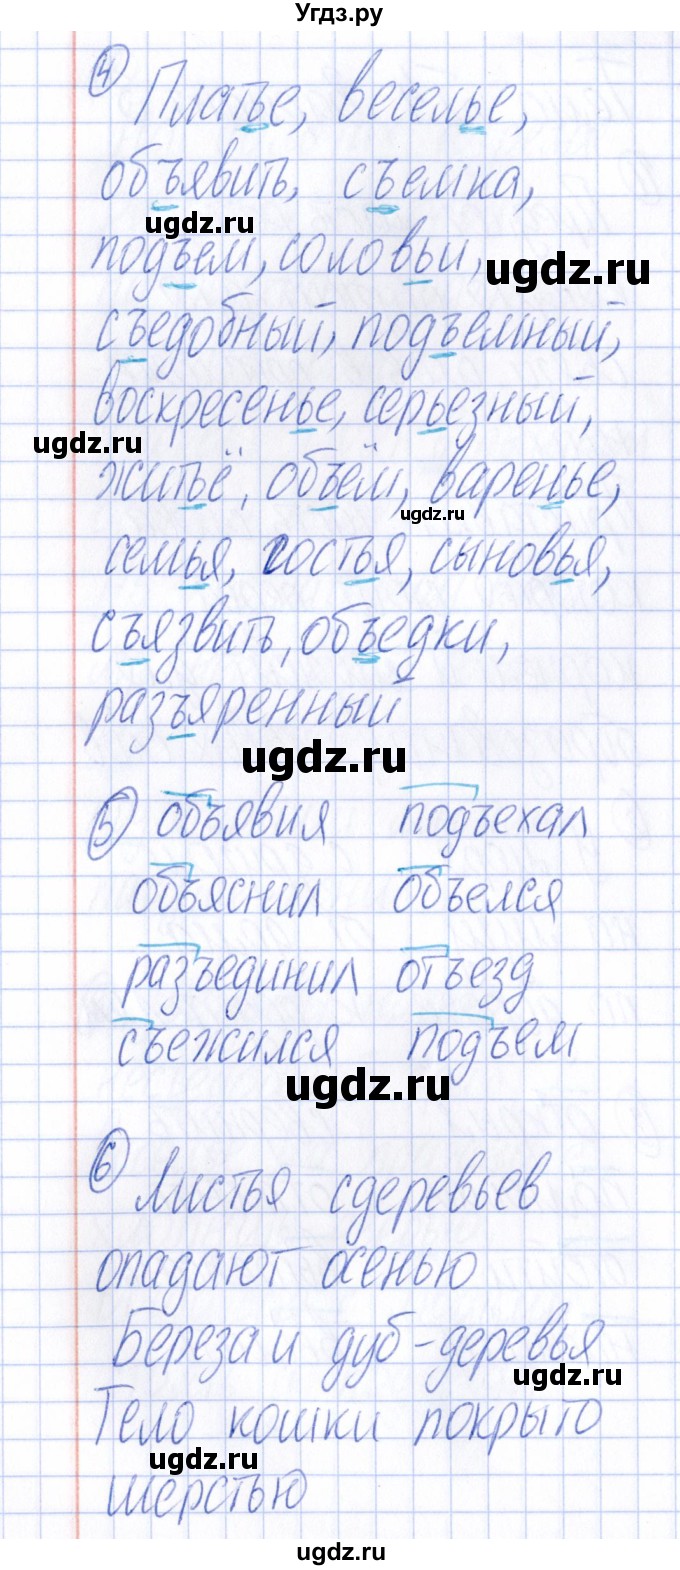 Угдз.ру
④ Платье, веселье,
объявить, съемка,
ugdz.ru
подъем, соловьи,
ugdz.ru
съедобный, подъемный,
воскресенье, серьезный,
ugdz.ru
житьё, объём, варенье,
ugdz.ru
семья, гостья, сыновья,
съязвить, объедки,
разъяренный
ugdz.ru
⑤ объявил подъехал
объяснил объелся
разъединил отъезд
съежился подъем
ugdz.ru
⑥ Листья с деревьев
опадают осенью
Береза и дуб - деревья
ugdz.ru
Тело кошки покрыто
ugdz.ru
шерстью
ugdz.ru